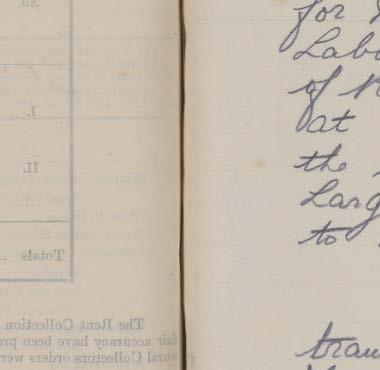 No.
I.
II.
Totals ...
The Rent Collection
their accuracy have been pr
tural Collectors orders wer
for
Labo
of
at
the
Larg
to
tran